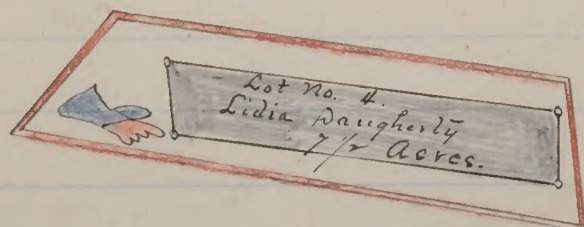 Lot No. 4.
Lidia Daugherty
7 1/2 Acres.